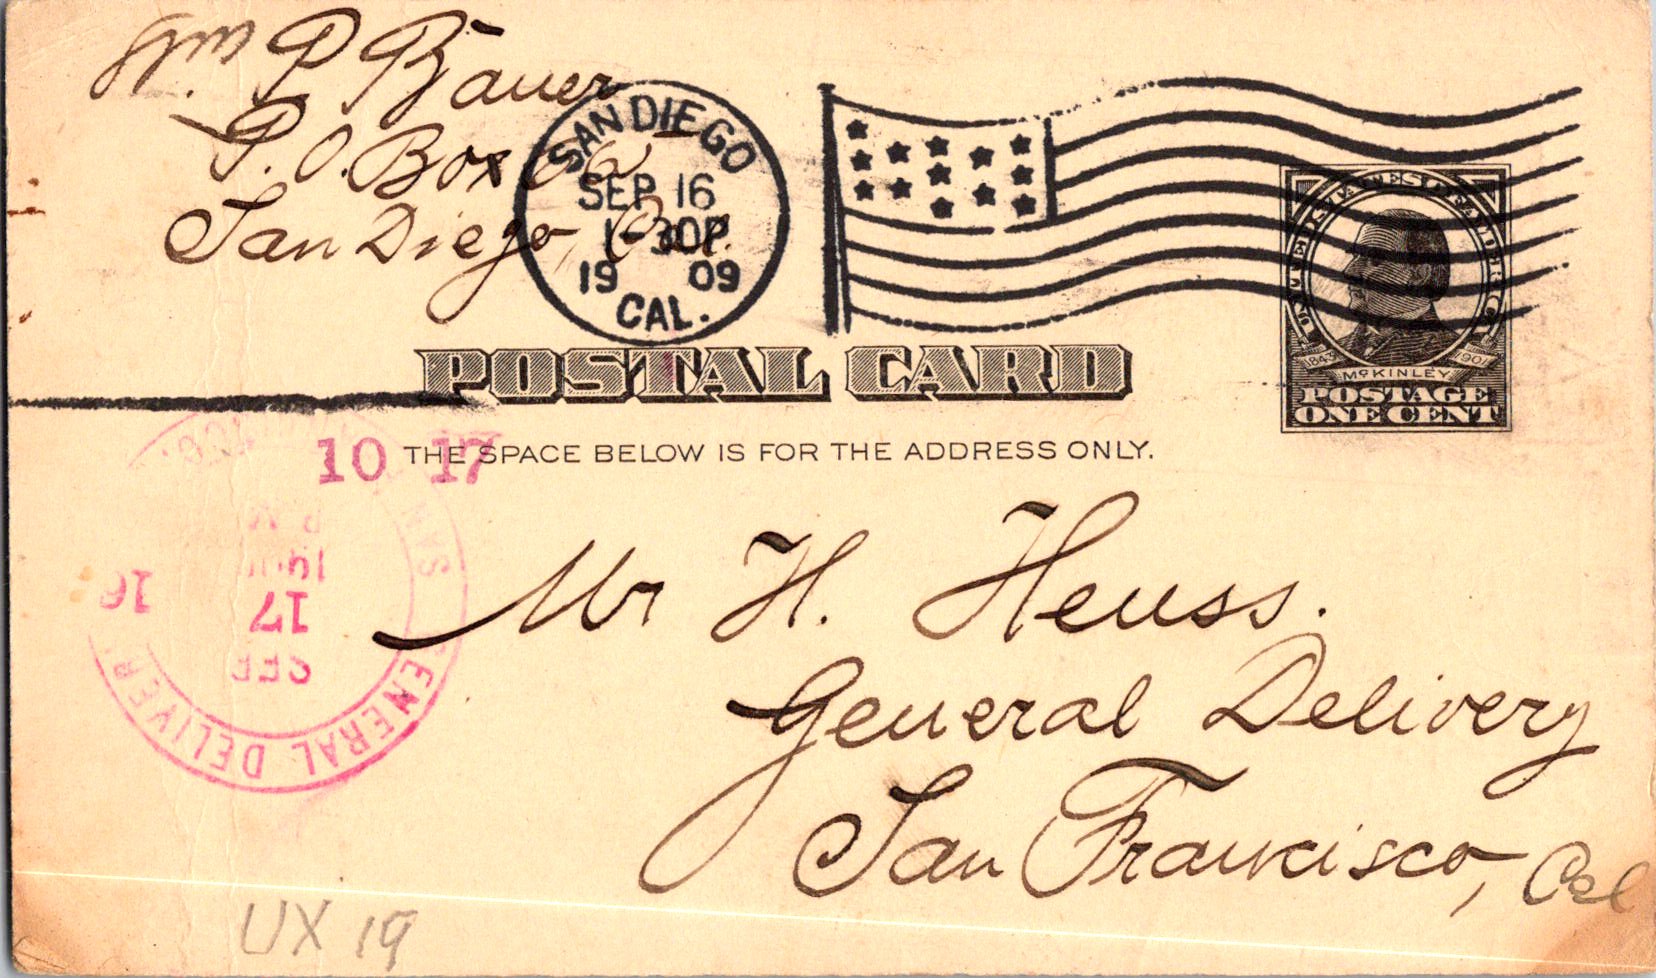 Wm P Bauer
P.O. Box 62
San Diego, Cal.
SAN DIEGO
SEP 16
1-30P
19 09
CAL.
UNITED STATES OF AMERICA
1843 1901
McKINLEY
POSTAGE
ONE CENT
POSTAL CARD
THE SPACE BELOW IS FOR THE ADDRESS ONLY.
10 17
SAN
GENERAL DELIVERY
SEP
17
16
Mr H. Heuss.
General Delivery
San Francisco, Cal
UX 19